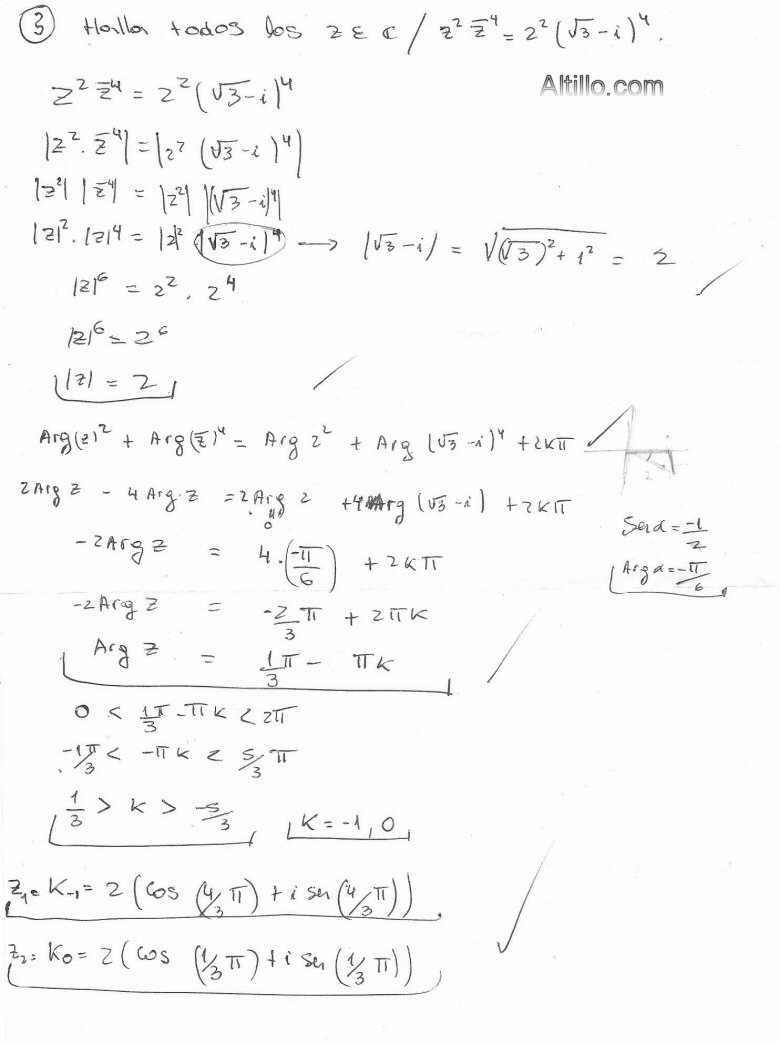 ③ Halla todos los z ∈ ℂ / z² z̄⁴ = 2² (√3 - i)⁴.
Altillo.com
z² z̄⁴ = 2² (√3 - i)⁴
|z² . z̄⁴| = |2² (√3 - i)⁴|
|z²| |z̄⁴| = |2²| |(√3 - i)⁴|
|z|² . |z|⁴ = |2|² |√3 - i|⁴ → |√3 - i| = √((√3)² + 1²) = 2
|z|⁶ = 2² . 2⁴
|z|⁶ = 2⁶
|z| = 2
Arg(z)² + Arg(z̄)⁴ = Arg 2² + Arg (√3 - i)⁴ + 2kπ
2 Arg z - 4 Arg z = 2 Arg 2 + 4 Arg (√3 - i) + 2kπ
0
-2 Arg z = 4 . (-π/6) + 2kπ
Sen α = -1/2
Arg α = -π/6
-2 Arg z = -2/3 π + 2πk
Arg z = 1/3 π - πk
0 < 1/3 π - πk < 2π
-1/3 π < -πk < 5/3 π
1/3 > k > -5/3 k = -1, 0
z₁ = K₋₁ = 2 (cos (4/3 π) + i sen (4/3 π))
z₂ = K₀ = 2 (cos (1/3 π) + i sen (1/3 π))